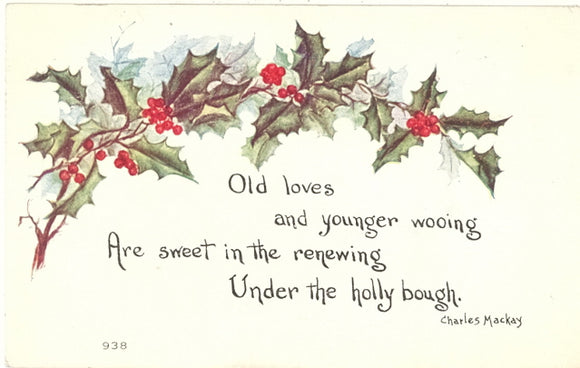 Old loves
and younger wooing
Are sweet in the renewing
Under the holly bough.
Charles Mackay
938